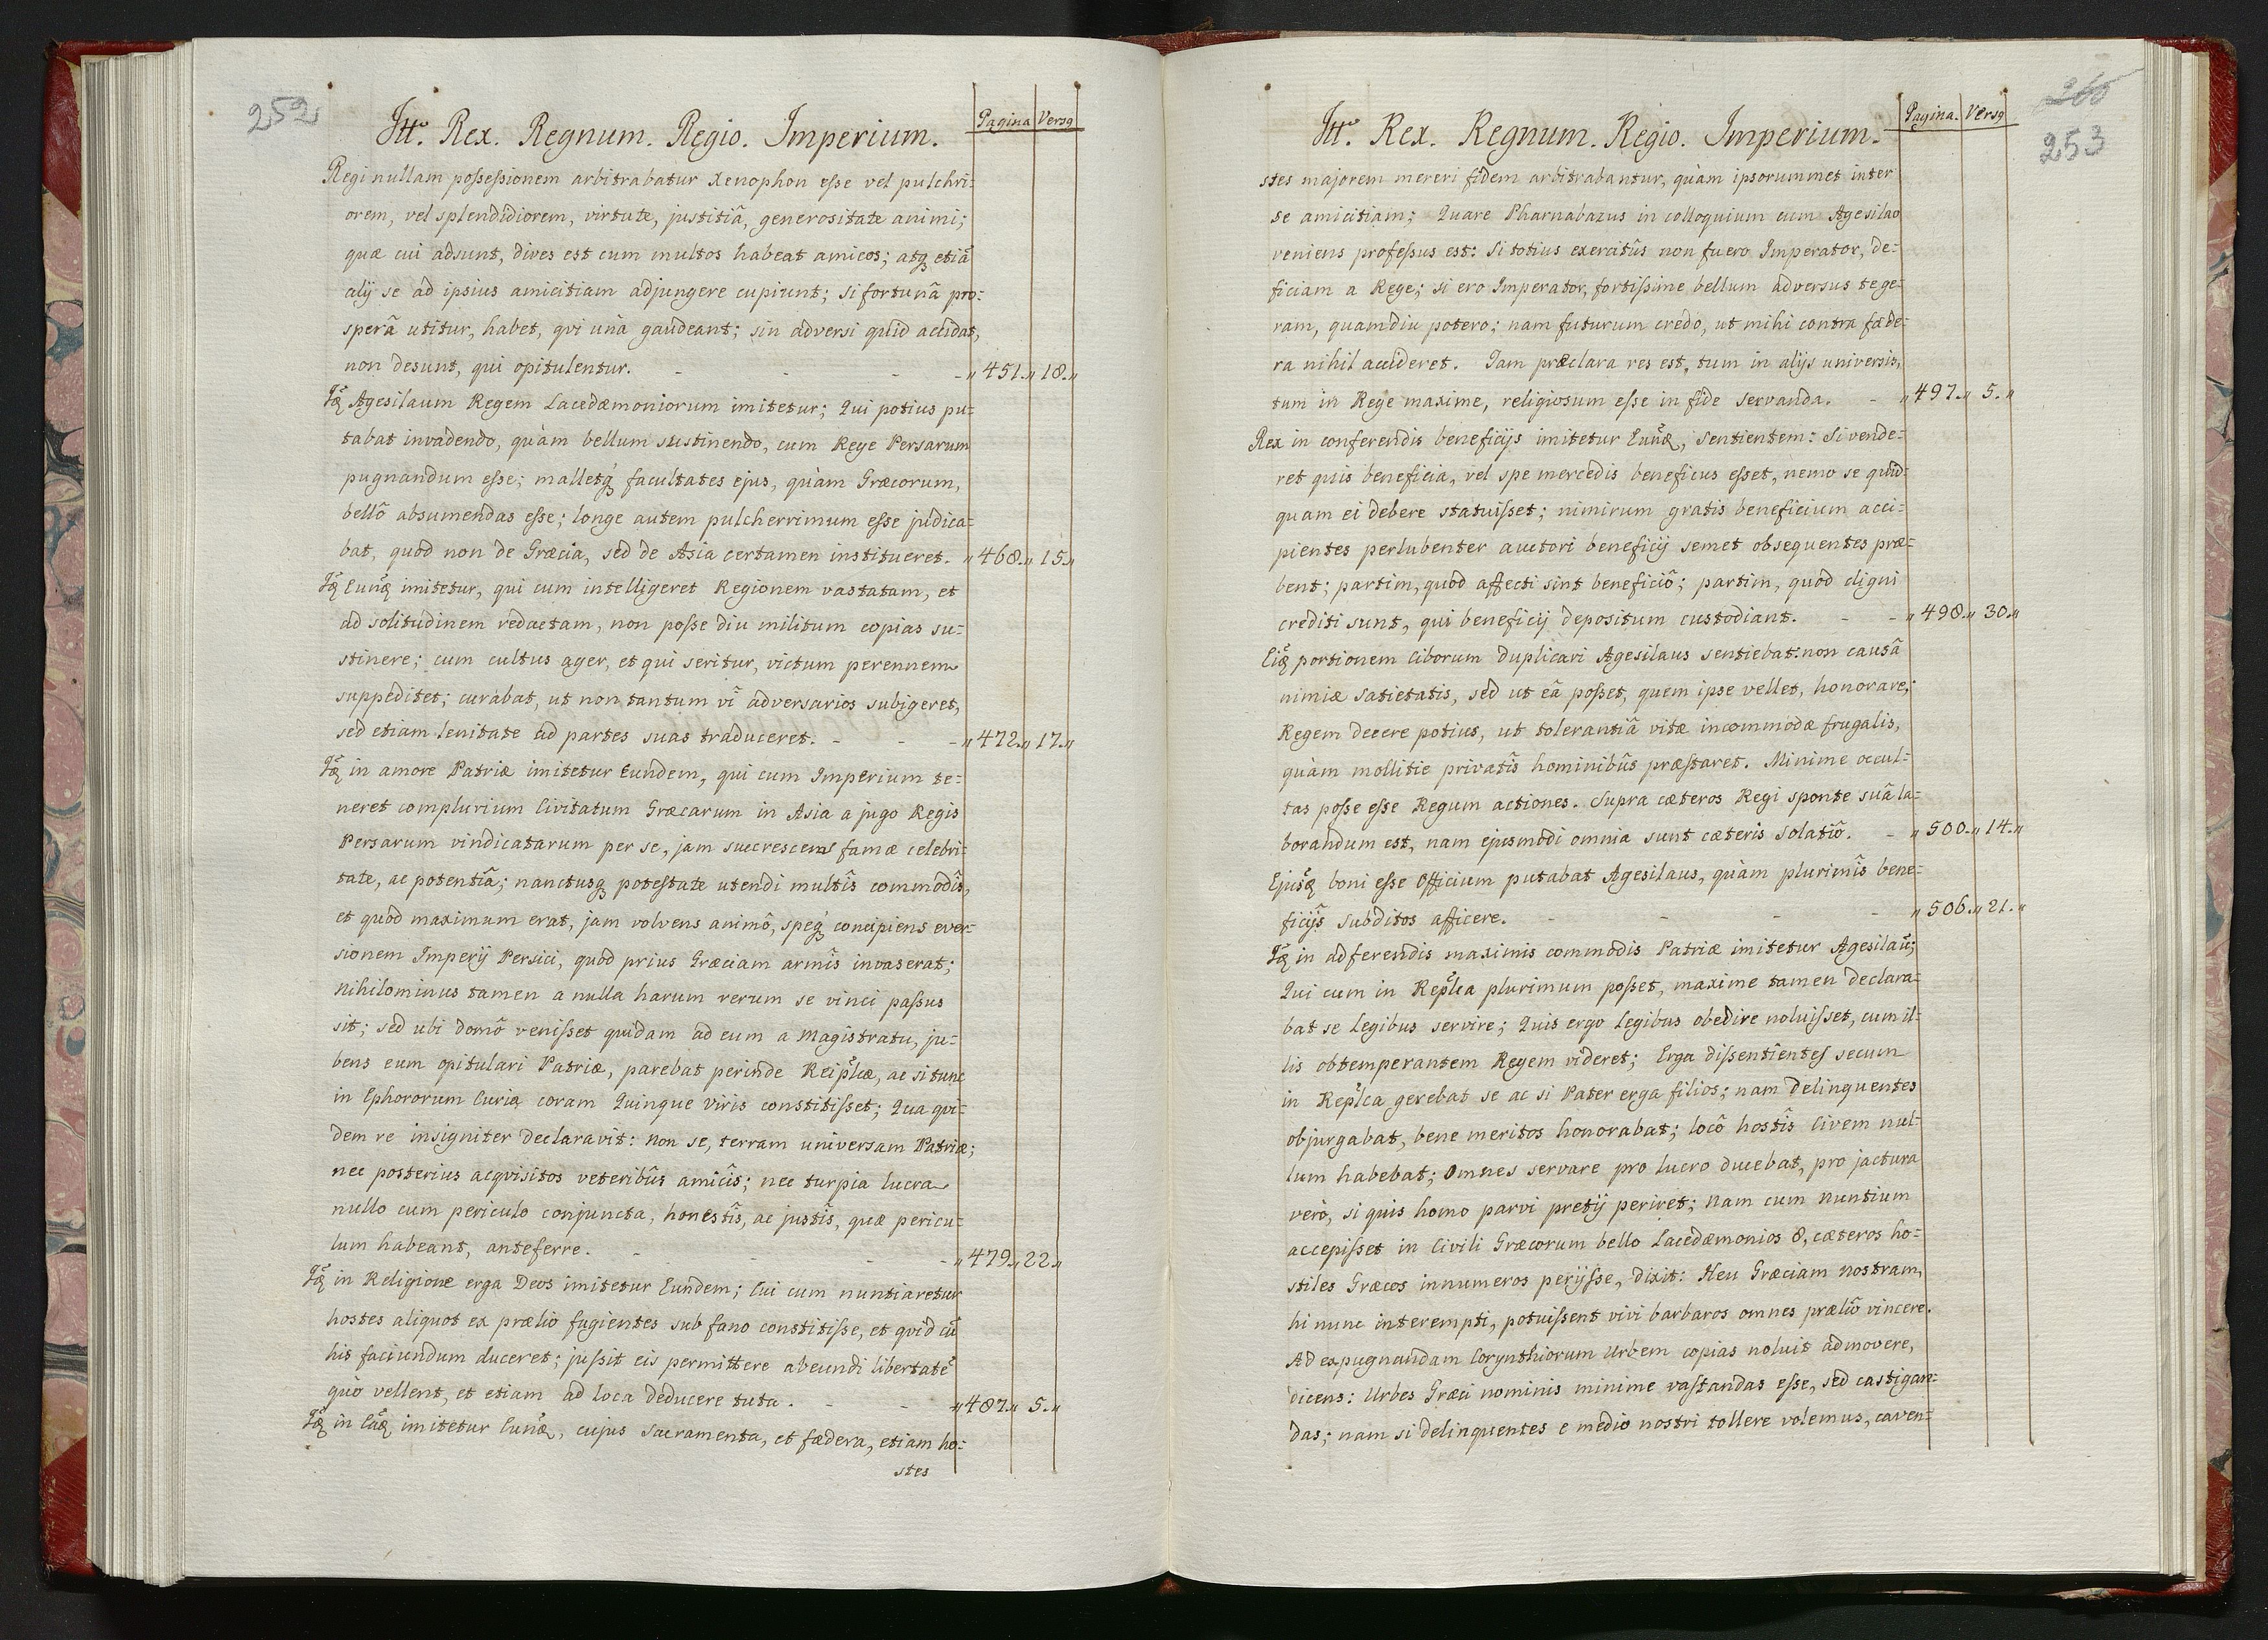 252
Itt. Rex. Regnum. Regio. Imperium.
Pagina Versq
Regi nullam poſseſsionem arbitrabatur Xenophon eſse vel pulchri:
orem, vel splendidiorem, virtute, justitiâ, generositate animi;
quæ cui adsunt, dives est cum multos habeat amicos; atq etiã
alij se ad ipsius amicitiam adjungere cupiunt; si fortunâ pro:
sperâ utitur, habet, qvi unà gaudeant; sin adversi quid accidat,
non desunt, qui opitulentur. - - - - „451.„18.„
Agesilaum Regem Lacedæmoniorum imitetur; Qui potius pu:
tabat invadendo, quàm bellum sustinendo, cum Rege Persarum
pugnandum eſse; malletq facultates ejus, quàm Græcorum,
bellô absumendas eſse; longe autem pulcherrimum eſse judica:
bat, quòd non de Græcia, sed de Asia certamen institueret. „468.„15.„
imitetur, qui cum intelligeret Regionem vastatam, et
ad solitudinem redactam, non poſse diu militum copias su:
stinere; cum cultus ager, et qui seritur, victum perennem
suppeditet; curabat, ut non tantum vî adversarios subigeret,
sed etiam lenitate ad partes suas traduceret. - - - „472.„17.„
in amore Patriæ imitetur Eundem, qui cum Imperium te:
neret complurium Civitatum Græcarum in Asia a jugo Regis
Persarum vindicatarum per se, jam succrescens famæ celebri:
tate, ac potentiâ; nanctusq potestate utendi multîs commodîs,
et quòd maximum erat, jam volvens animô, speq concipiens ever:
sionem Imperij Persici, quòd prius Græciam armîs invaserat;
nihilominus tamen a nulla harum rerum se vinci paſsus
sit; sed ubi domô veniſset quidam ad eum a Magistratu, ju:
bens eum opitulari Patriæ, parebat perinde Reiplcæ, ac si tunc
in Ephororum Curia coram Quinque viris constitiſset; Qua qvi:
dem re insigniter declaravit: non se, terram universam Patriæ;
nec posterius acqvisitos veteribûs amicîs; nec turpia lucra
nullo cum periculo conjuncta, honestîs, ac justîs, quæ pericu:
lum habeant, anteferre. - - - - „479.„22„
in Religione erga Deos imitetur Eundem; Cui cum nuntiaretur
hostes aliquot ex prælio fugientes sub fano constitiſse, et qvid cũ
his faciundum duceret; juſsit eis permittere abeundi libertatẽ
quò vellent, et etiam ad loca deducere tuta. - - - „487.„5.„
in imitetur cujus sacramenta, et fædera, etiam ho:
stes
253
Itt. Rex. Regnum. Regio. Imperium.
Pagina. Versq
stes majorem mereri fidem arbitrabantur, quàm ipsorummet inter
se amicitiam; Quare Pharnabazus in colloquium cum Agesilao
veniens profeſsus est: Si totius exercitûs non fuero Imperator, de:
ficiam a Rege; si ero Imperator, fortiſsime bellum adversus te ge:
ram, quamdiu potero; nam futurum credo, ut mihi contra fæde:
ra nihil accideret. Iam præclara res est, tum in alijs universis,
tum in Rege maxime, religiosum eſse in fide servanda. - „497.„5.„
Rex in conferendis beneficijs imitetur sentientem: Si vende:
ret quis beneficia, vel spe mercedis beneficus eſset, nemo se quid:
quam ei debere statuiſset; nimirum gratis beneficium acci:
pientes perlubenter auctori beneficij semet obsequentes præ:
bent; partim, quòd affecti sint beneficiô; partim, quòd digni
crediti sunt, qui beneficij depositum custodiant. - - „498.„30.„
portionem Ciborum duplicari Agesilaus sentiebat: non causâ
nimiæ satietatis, sed ut eâ poſset, quem ipse vellet, honorare;
Regem decere potius, ut tolerantiâ vitæ incommodæ frugalis,
quàm mollitie privatîs hominibûs præstaret. Minime occul:
tas poſse eſse Regum actiones. Supra cæteros Regi sponte suâ la:
borandum est, nam ejusmodi omnia sunt cæteris solatiô. - „500.„14.„
boni eſse Officium putabat Agesilaus, quàm plurimîs bene:
ficijs subditos afficere. - - - - „506.„21.„
in adferendis maximis commodis Patriæ imitetur Agesilaũ;
Qui cum in Replca plurimum poſset, maxime tamen declara:
bat se Legibus servire; Quis ergo Legibus obedire noluiſset, cum il:
lis obtemperantem Regem videret; Erga diſsentientes secum
in Replca gerebat se ac si Pater erga filios; nam delinquentes
objurgabat, bene meritos honorabat; locô hostîs Civem nul:
lum habebat; Omnes servare pro lucro ducebat, pro jactura
verò, si quis homo parvi pretij periret; nam cum nuntium
accepiſset in Civili Græcorum bello Lacedæmonios 8, cæteros ho:
stiles Græcos innumeros perijſse, dixit: Heu Græciam nostram,
hi nunc interempti, potuiſsent vivi barbaros omnes præliô vincere.
Ad expugnandam Corynthiorum Urbem copias noluit admovere,
dicens: Urbes Græci nominis minime vastandas eſse, sed castigan:
das; nam si delinquentes e medio nostri tollere volemus, caven: